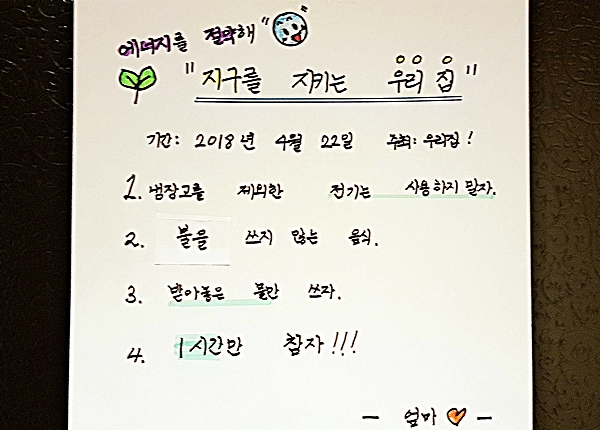 에너지를 절약해"
"지구를 지키는 우리 집"
기간: 2018년 4월 22일 주최: 우리집!
1. 냉장고를 제외한 전기는 사용하지 말자.
2. 불을 쓰지 않는 음식.
3. 받아놓은 물만 쓰자.
4. 1시간만 참자!!!
- 엄마 -